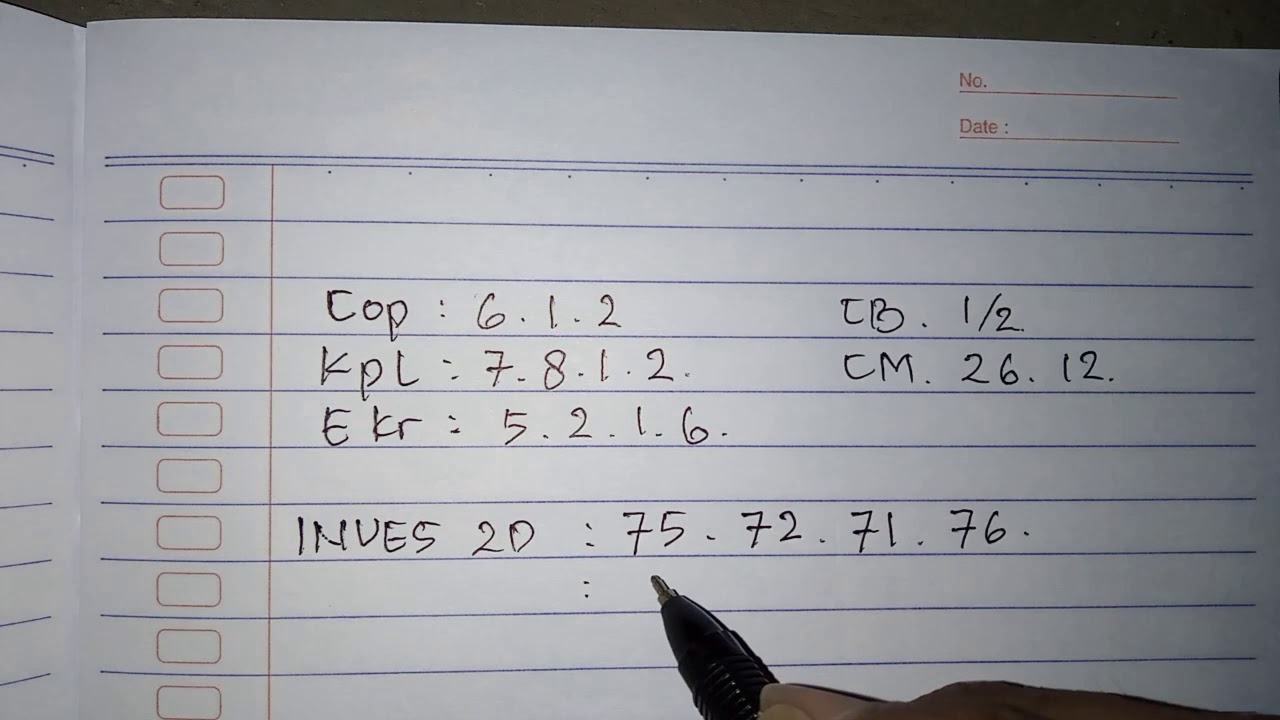 No.
Date :
Cop : 6.1.2 CB. 1/2.
Kpl : 7.8.1.2. CM. 26.12.
Ekr : 5.2.1.6.
INVES 2D : 75. 72. 71. 76.
: